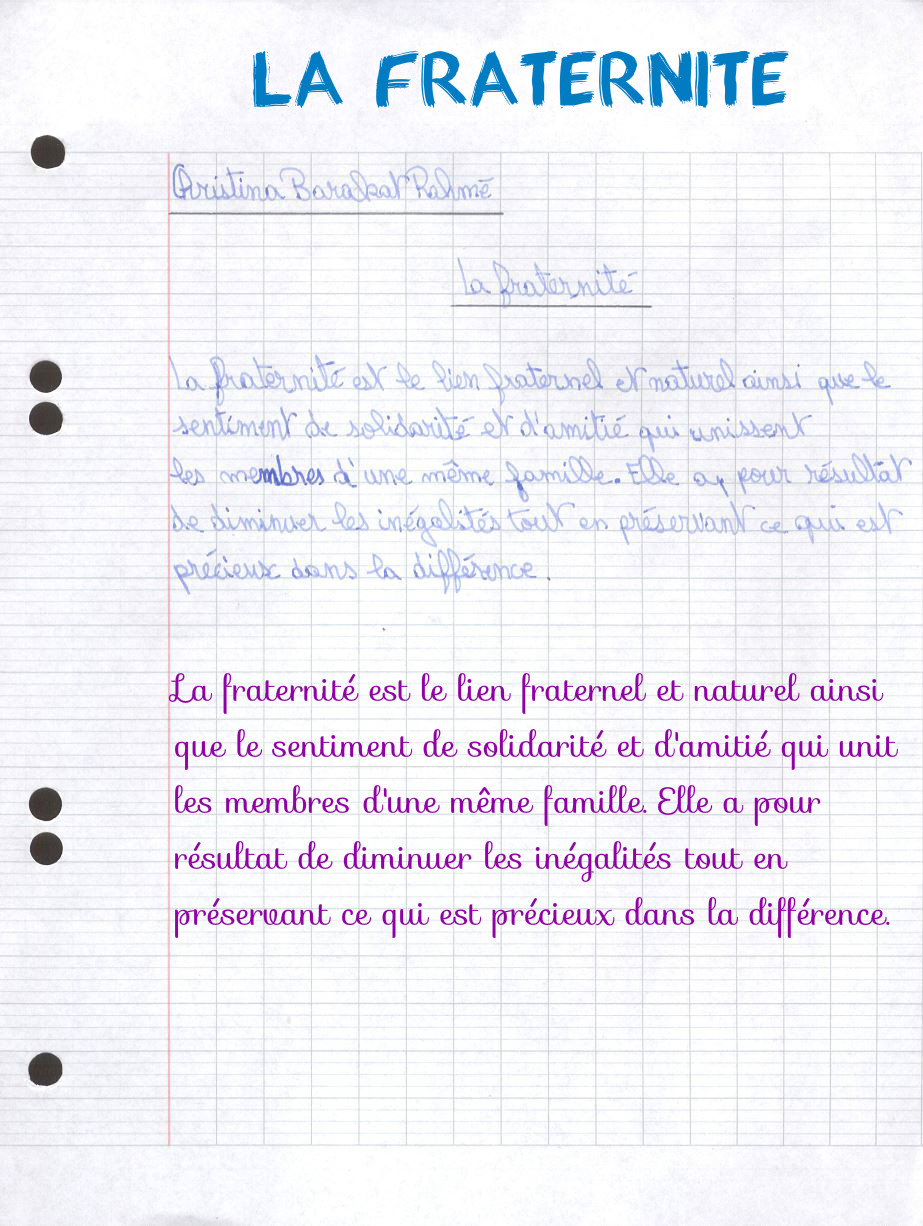 LA FRATERNITE
Christina Barakat Rahmé
La fraternité
La fraternité est le lien fraternel et naturel ainsi que le
sentiment de solidarité et d'amitié qui unissent
les membres d'une même famille. Elle a pour résultat
de diminuer les inégalités tout en préservant ce qui est
précieux dans la différence.
La fraternité est le lien fraternel et naturel ainsi
que le sentiment de solidarité et d'amitié qui unit
les membres d'une même famille. Elle a pour
résultat de diminuer les inégalités tout en
préservant ce qui est précieux dans la différence.